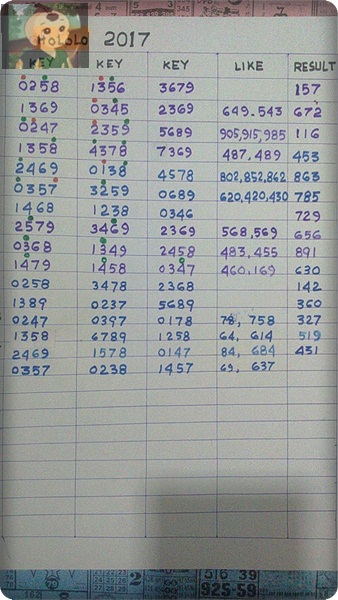 HOLSLO 2017
KEY KEY KEY LIKE RESULT
0258 1356 3679 157
1369 0345 2369 649.543 672
0247 2359 5689 905,915,985 116
1358 4378 7369 487.489 453
2469 0138 4578 802,852,862 863
0357 3259 0689 620,420,430 785
1468 1238 0346 729
2579 3469 2369 568,569 656
0368 1349 2458 483,455 891
1479 1458 0347 460.169 630
0258 3478 2368 142
1389 0237 5689 360
0247 0397 0178 78, 758 327
1358 6789 1258 64, 614 519
2469 1578 0147 84, 684 431
0357 0238 1457 69, 637
516 39
925-59